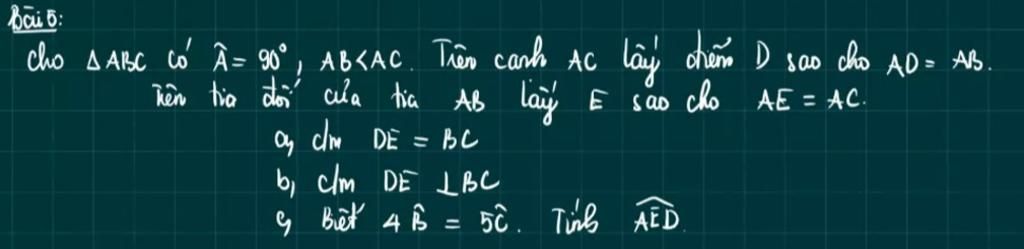 Bài 5:
Cho △ABC có Â = 90°, AB < AC. Trên cạnh AC lấy điểm D sao cho AD = AB.
Trên tia đối của tia AB lấy E sao cho AE = AC.
a, c/m DE = BC
b, c/m DE ⊥ BC
c, Biết 4B̂ = 5Ĉ. Tính \widehat{AED}.